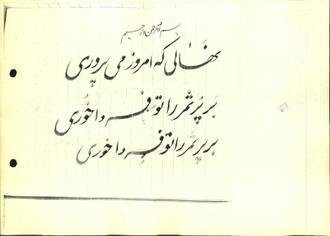 بسم الله الرحمن الرحیم
نهالی که امروز می پروری
بر پرثمر را تو فردا خوری
بر پرثمر را تو فردا خوری